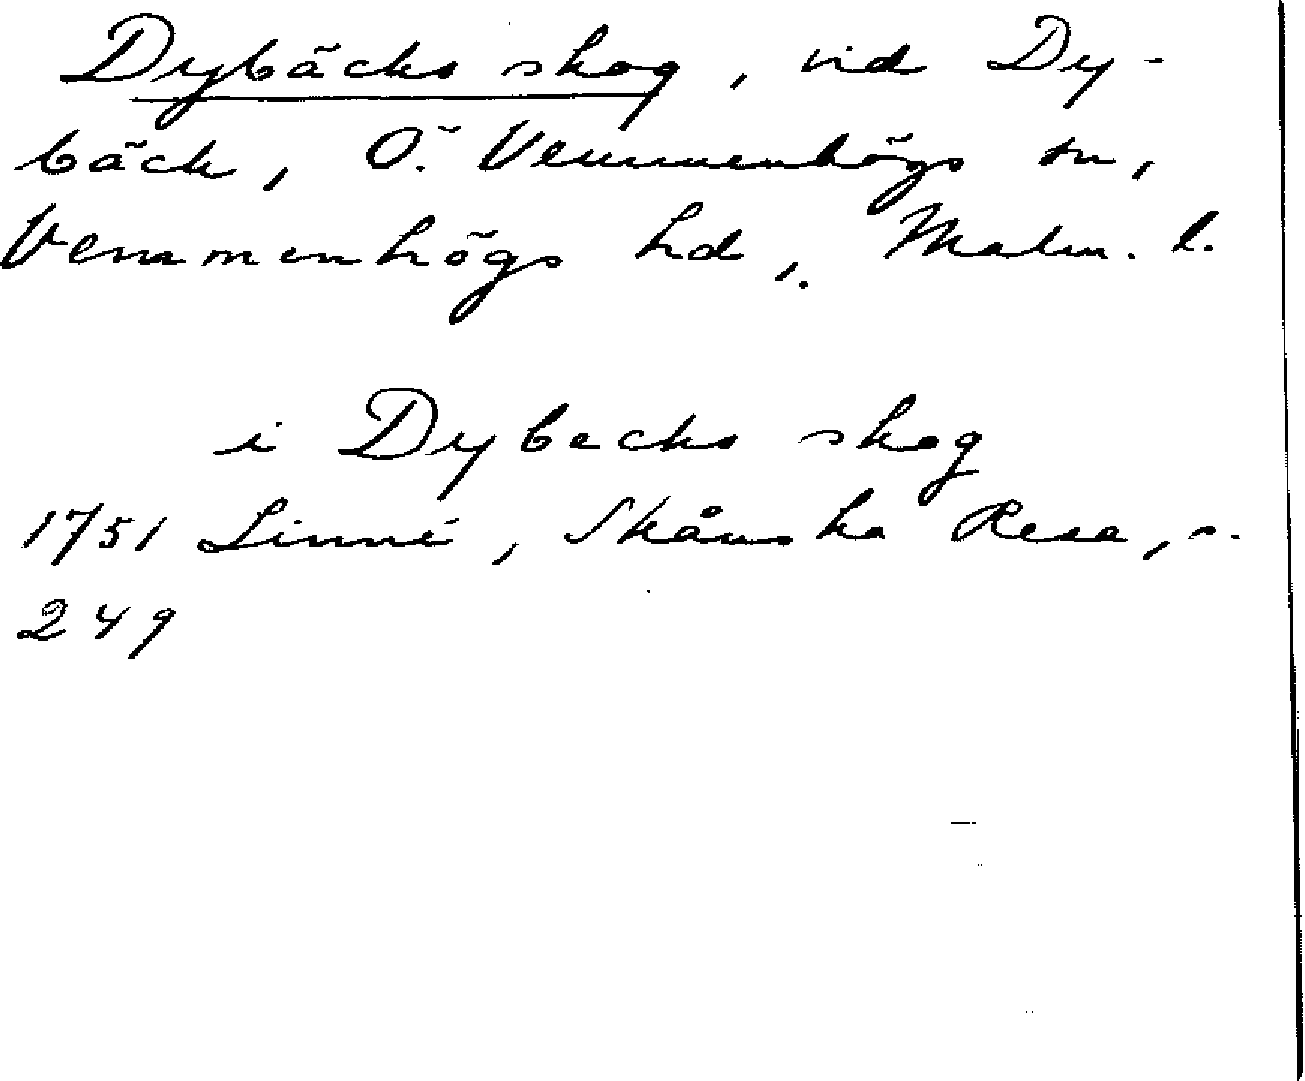 Dybäcks skog, vid Dy-
bäck, Ö. Vemmenhögs sn,
Vemmenhögs hd, Malm. l.
i Dybecks skog
1751 Linné, Skånska Resa, s.
249